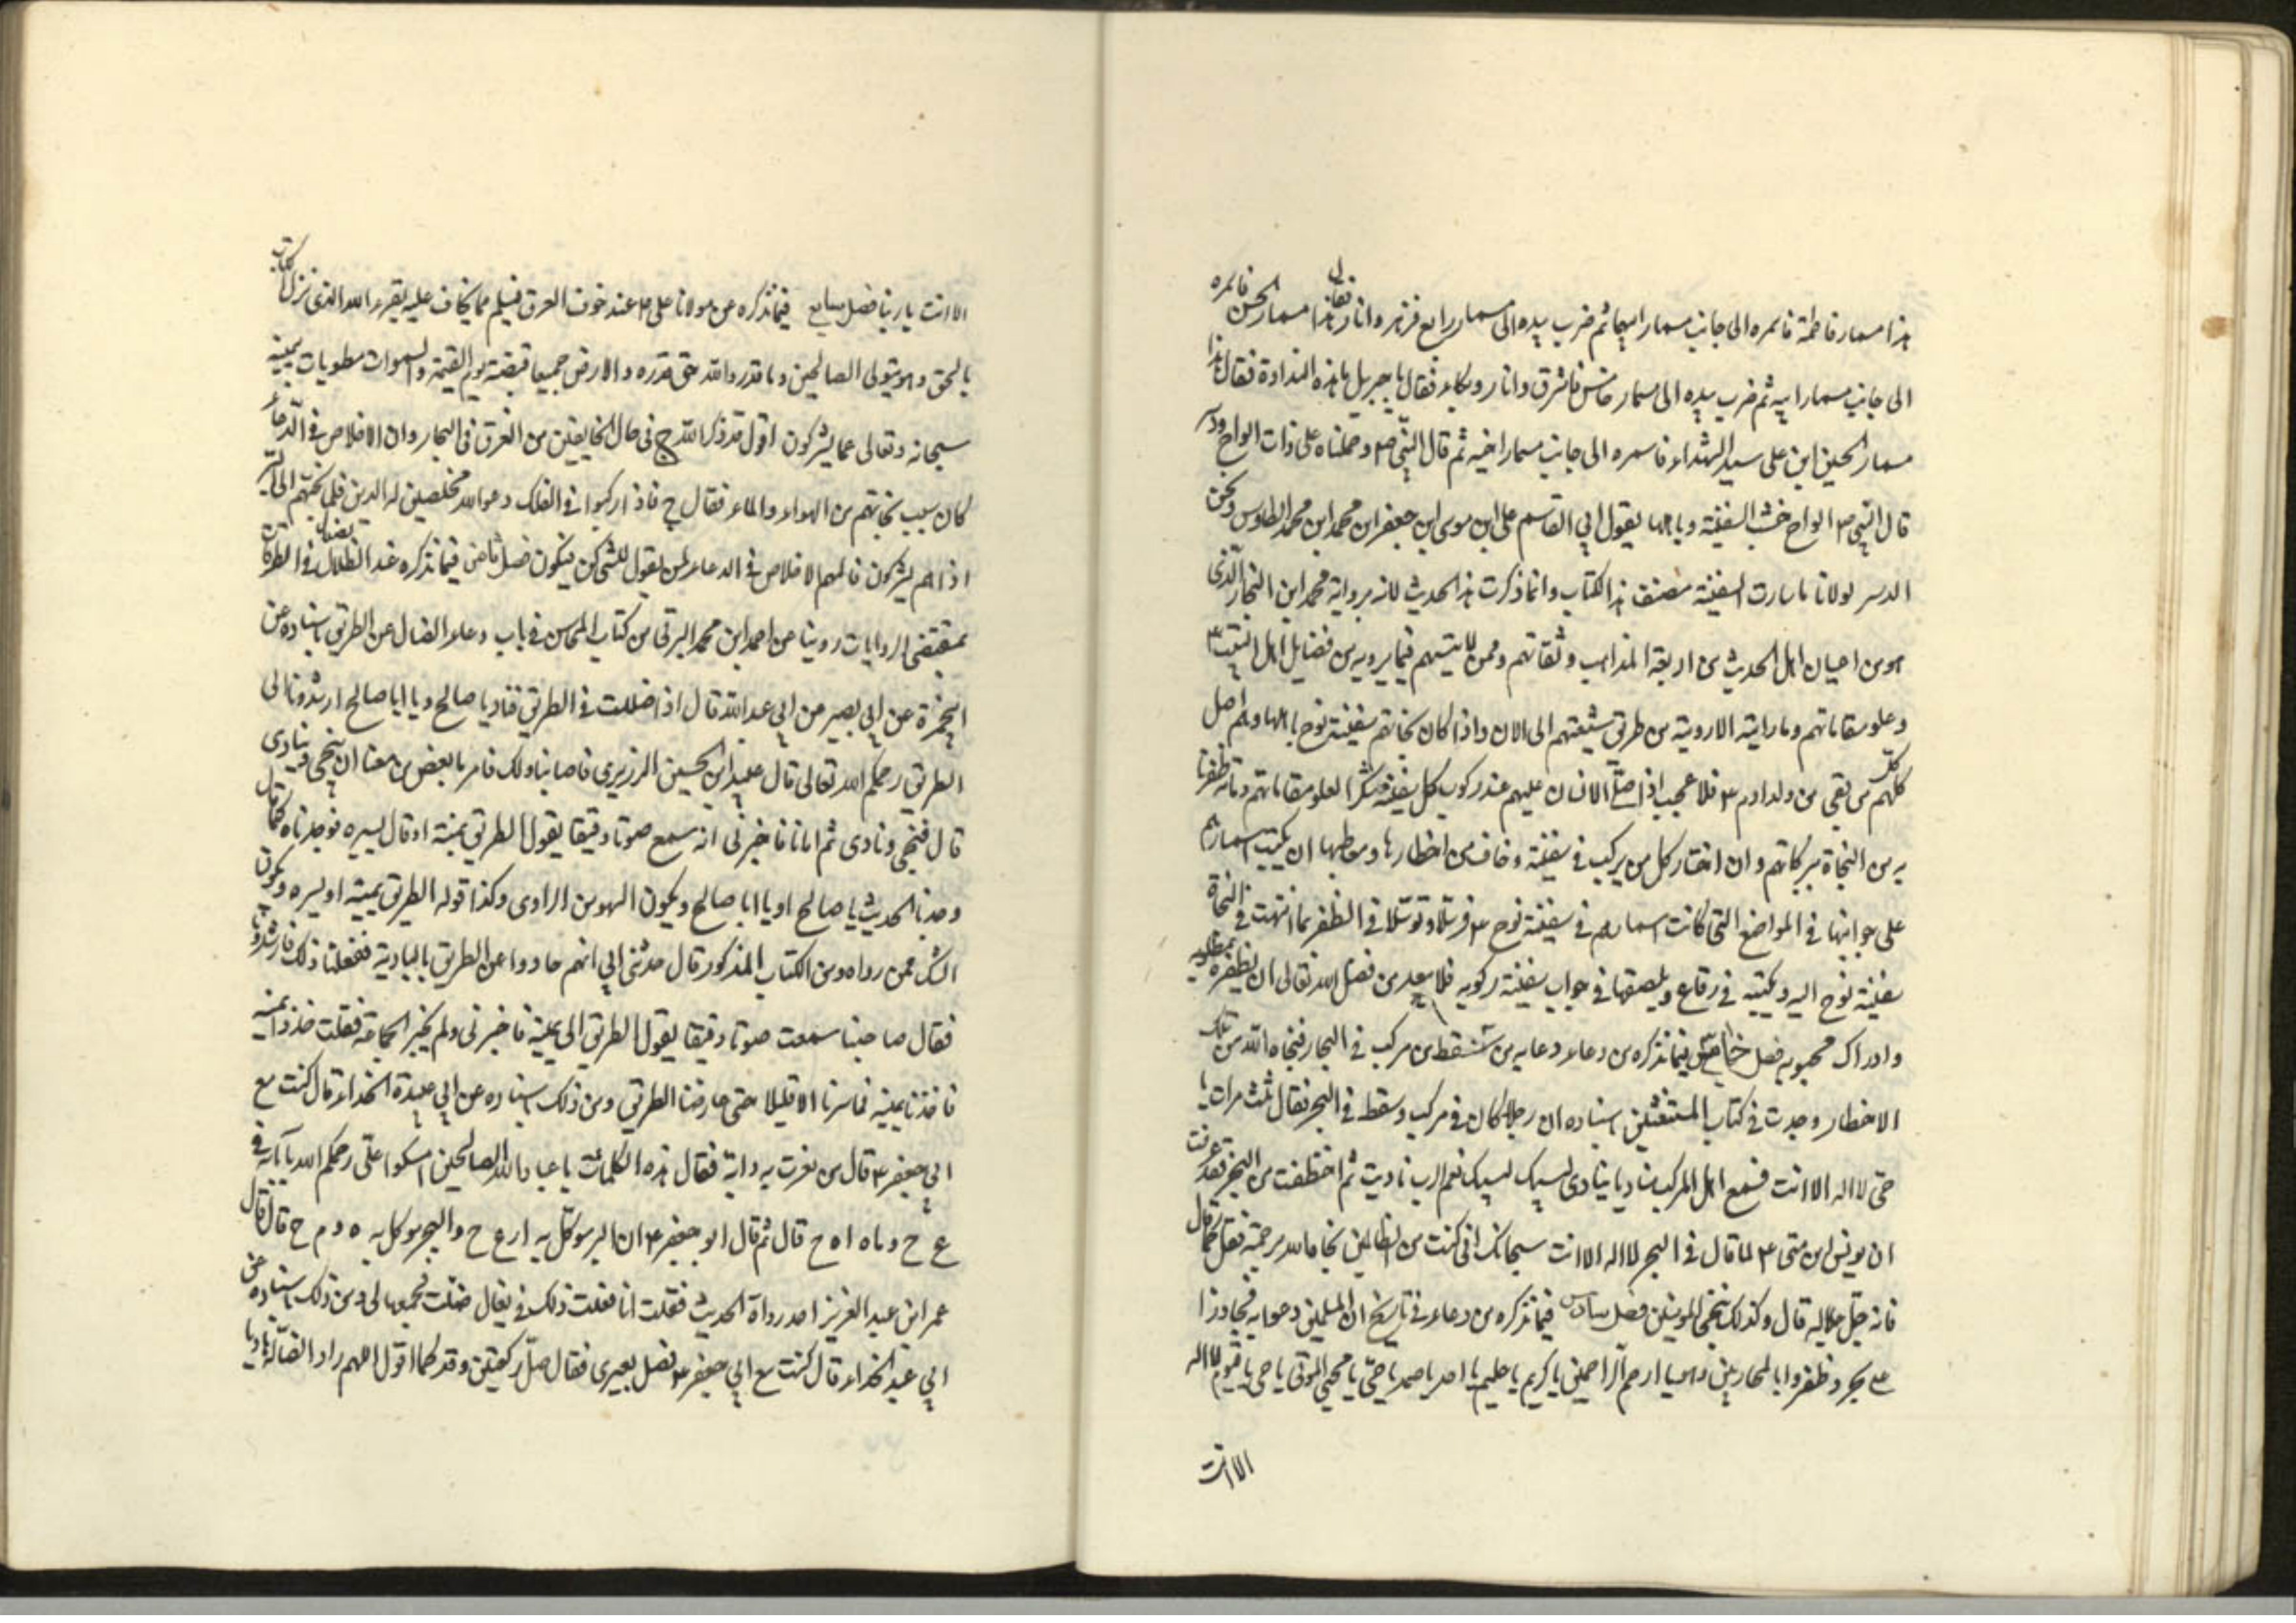 هذا مسمار فاطمة فاسمره الى جانب مسمار ابيها ثم ضرب بيده الى مسمار رابع فزهر وانار فقال هذا مسمار الحسن فاسمره
الى جانب مسمار ابيه ثم ضرب بيده الى مسمار خامس فاشرق وانار وبكا فقال يا جبريل ما هذه النداوة فقال هذا
مسمار الحسين ابن على سيد الشهداء فاسمره الى جانب مسمار اخيه ثم قال النبي ص وحملناه على ذات الواح ودسر
قال النبي ص الواح خشب السفينة ويا يقول ابي القاسم على ابن موسى ابن جعفر ابن محمد ابن محمد الطاوس ونحن
الدسر لولانا ما سارت السفينة مصنف هذا الكتاب وانما ذكرت هذا الحديث لانه برواية محمد ابن النجار الذى
هو من اعيان اهل الحديث من اربعة المذاهب وثقاتهم وممن لا يتهم فيما يرويه من فضايل اهل البيت ع
وعلو مقاماتهم وما رايته الا رويته من طريق شيعتهم الى الان واذا كان نجاتهم سفينة نوح باهلها وهم اصل
كلهم من بقى من ولد ادم ع فلا عجب اذا صلى الانسان عليهم عند ركوب كل سفينة شكرا لعلو مقاماتهم وما ظفرنا
به من النجاة ببركاتهم وان اختار كل من يركب في سفينة وخاف من اخطارها ومعاطبها ان يكتب اسماءهم
على جوانبها في المواضع التى كانت اسماءهم في سفينة نوح ع توسلا في الظفر بما انتهت في النجاة
سفينة نوح اليه ويكتبه في رقاع ويلصقها في جوانب سفينة ركوبه فلا يبعد من فضل الله تعالى ان يظفره بمطلوبه
وادراك محبوبه فصل خامس فيما نذكره من دعاء دعا به من سقط من مركب في البحار فنجاه الله من تلك
الاخطار وجدت في كتاب المستغيثين اسناده ان رجلا كان في مركب وسقط في البحر فقال ثلث مرات يا
حى لا اله الا انت فسمع اهل المركب مناديا ينادى لبيك لبيك نعم الرب ناديت ثم اختطفت من البحر فقد عرفت
ان يونس ابن متى ع لما قال في البحر لا اله الا انت سبحانك انى كنت من الظالمين نجاه الله برحمته فقل كما قال
فانه جل جلاله قال وكذلك ننجى المومنين فصل سادس فيما نذكره من دعاء في تاريخ ان المسلمين دعوا به فجاوزوا
على بحر وظفروا بالمحاربين وهو يا ارحم الراحمين يا كريم يا حليم يا احد يا صمد يا حى يا محيى الموتى يا حى يا قيوم لا اله
الا انت
الا انت يا ربنا فصل سابع فيما نذكره عن مولانا على ع عند خوف الغرق فيسلم مما يخاف عليه يقرء الله الذى نزل الكتاب
بالحق وهو يتولى الصالحين وما قدروا الله حق قدره والارض جميعا قبضته يوم القيمة والسموات مطويات بيمينه
سبحانه وتعالى عما يشركون اقول قد ذكر الله ج في حال الخايفين من الغرق في البحار وان الاخلاص في الدعاء
كان سبب نجاتهم من الهواء والماء فقال ج فاذا ركبوا في الفلك دعوا الله مخلصين له الدين فلما نجيهم الى البر
اذا هم يشركون فالمهم الاخلاص في الدعاء لمن يقول للشيء كن فيكون فصل ثامن فيما نذكره عند الضلال في الطرقات
بمقتضى الروايات روينا من احمد ابن محمد البرقى من كتاب المحاسن في باب دعاء الضال عن الطريق باسناده عن
ابي حمزة عن ابي بصير عن ابي عبد الله قال اذا ضللت في الطريق فناد يا صالح ويا ابا صالح ارشدونا الى
الطريق رحمكم الله تعالى قال عبيد ابن الحسين الزرندي فاصابنا ذلك فامرنا بعض من معنا ان يتنحى وينادى
قال فتنحى ونادى ثم اتانا فاخبرنى انه سمع صوتا دقيقا يقول الطريق يمنة او قال يسرة فوجدناه كما قال
وجدنا الحديث يا صالح او يا ابا صالح ويكون السهو من الراوى وكذا قوله الطريق يمنة او يسرة ويكون
الشك ممن رواه ومن الكتاب المذكور قال حدثنى ابي انهم حادوا عن الطريق بالبادية ففعلنا ذلك فارشدونا
فقال صاحبنا سمعت صوتا دقيقا يقول الطريق الى يمينه فاخبرنى ولم يخبر الجماعة فقلت خذوا يمينه
فاخذنا يمينه فما سرنا الا قليلا حتى عارضنا الطريق ومن ذلك اسناده عن ابي عبيدة الحذاء قال كنت مع
ابي جعفر ع قال من نفرت به دابة فقال هذه الكلمات يا عباد الله الصالحين امسكوا على رحمكم الله يا
ع ح وياه اه ح قال ثم قال ابو جعفر ع ان البر موكل به ا ر ع ح والبحر موكل به ه د م ح قال قال
عمر ابن عبد العزيز احد رواة الحديث فقلت انا فعلت ذلك في بغال ضلت فجمعها لى ومن ذلك اسناده عن
ابي عبيدة الحذاء قال كنت مع ابي جعفر ع فضل بعيرى فقال صل ركعتين وقد كما اقول اللهم راد الضالة هاديا